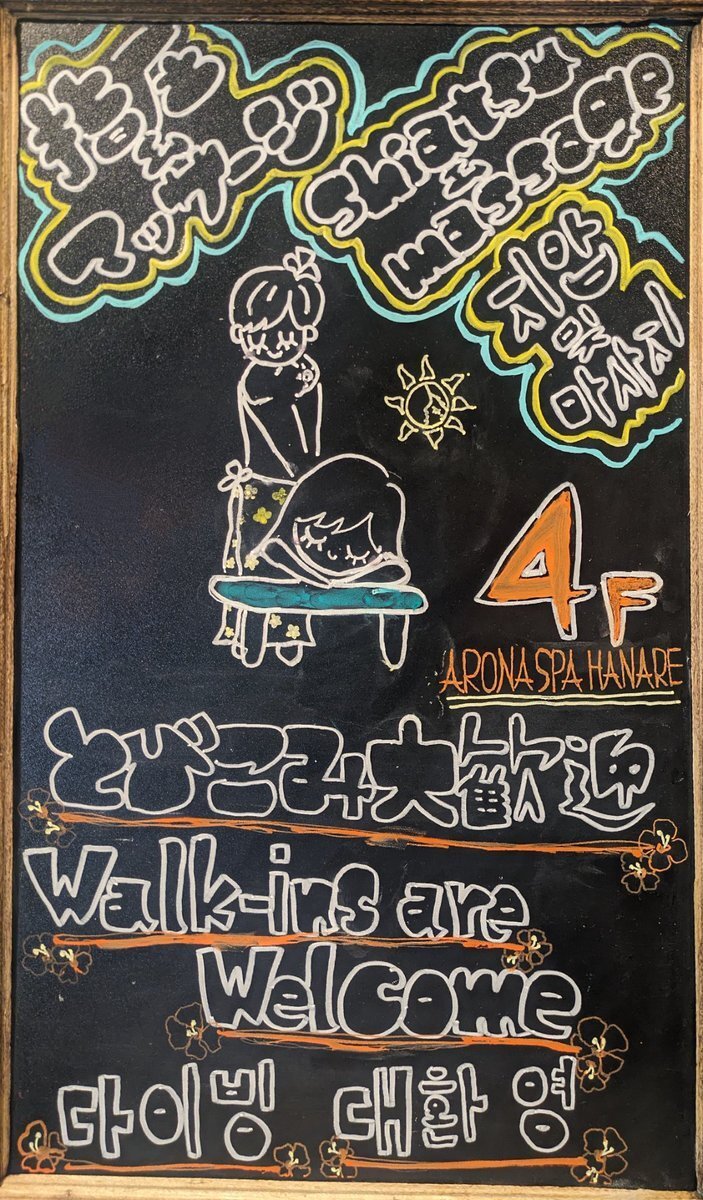 指圧
マッサージ
shiatsu
massage
지압
및
마사지
4F
ARONA SPA HANARE
とびこみ大歓迎
Walk-ins are
Welcome
다이빙 대환영